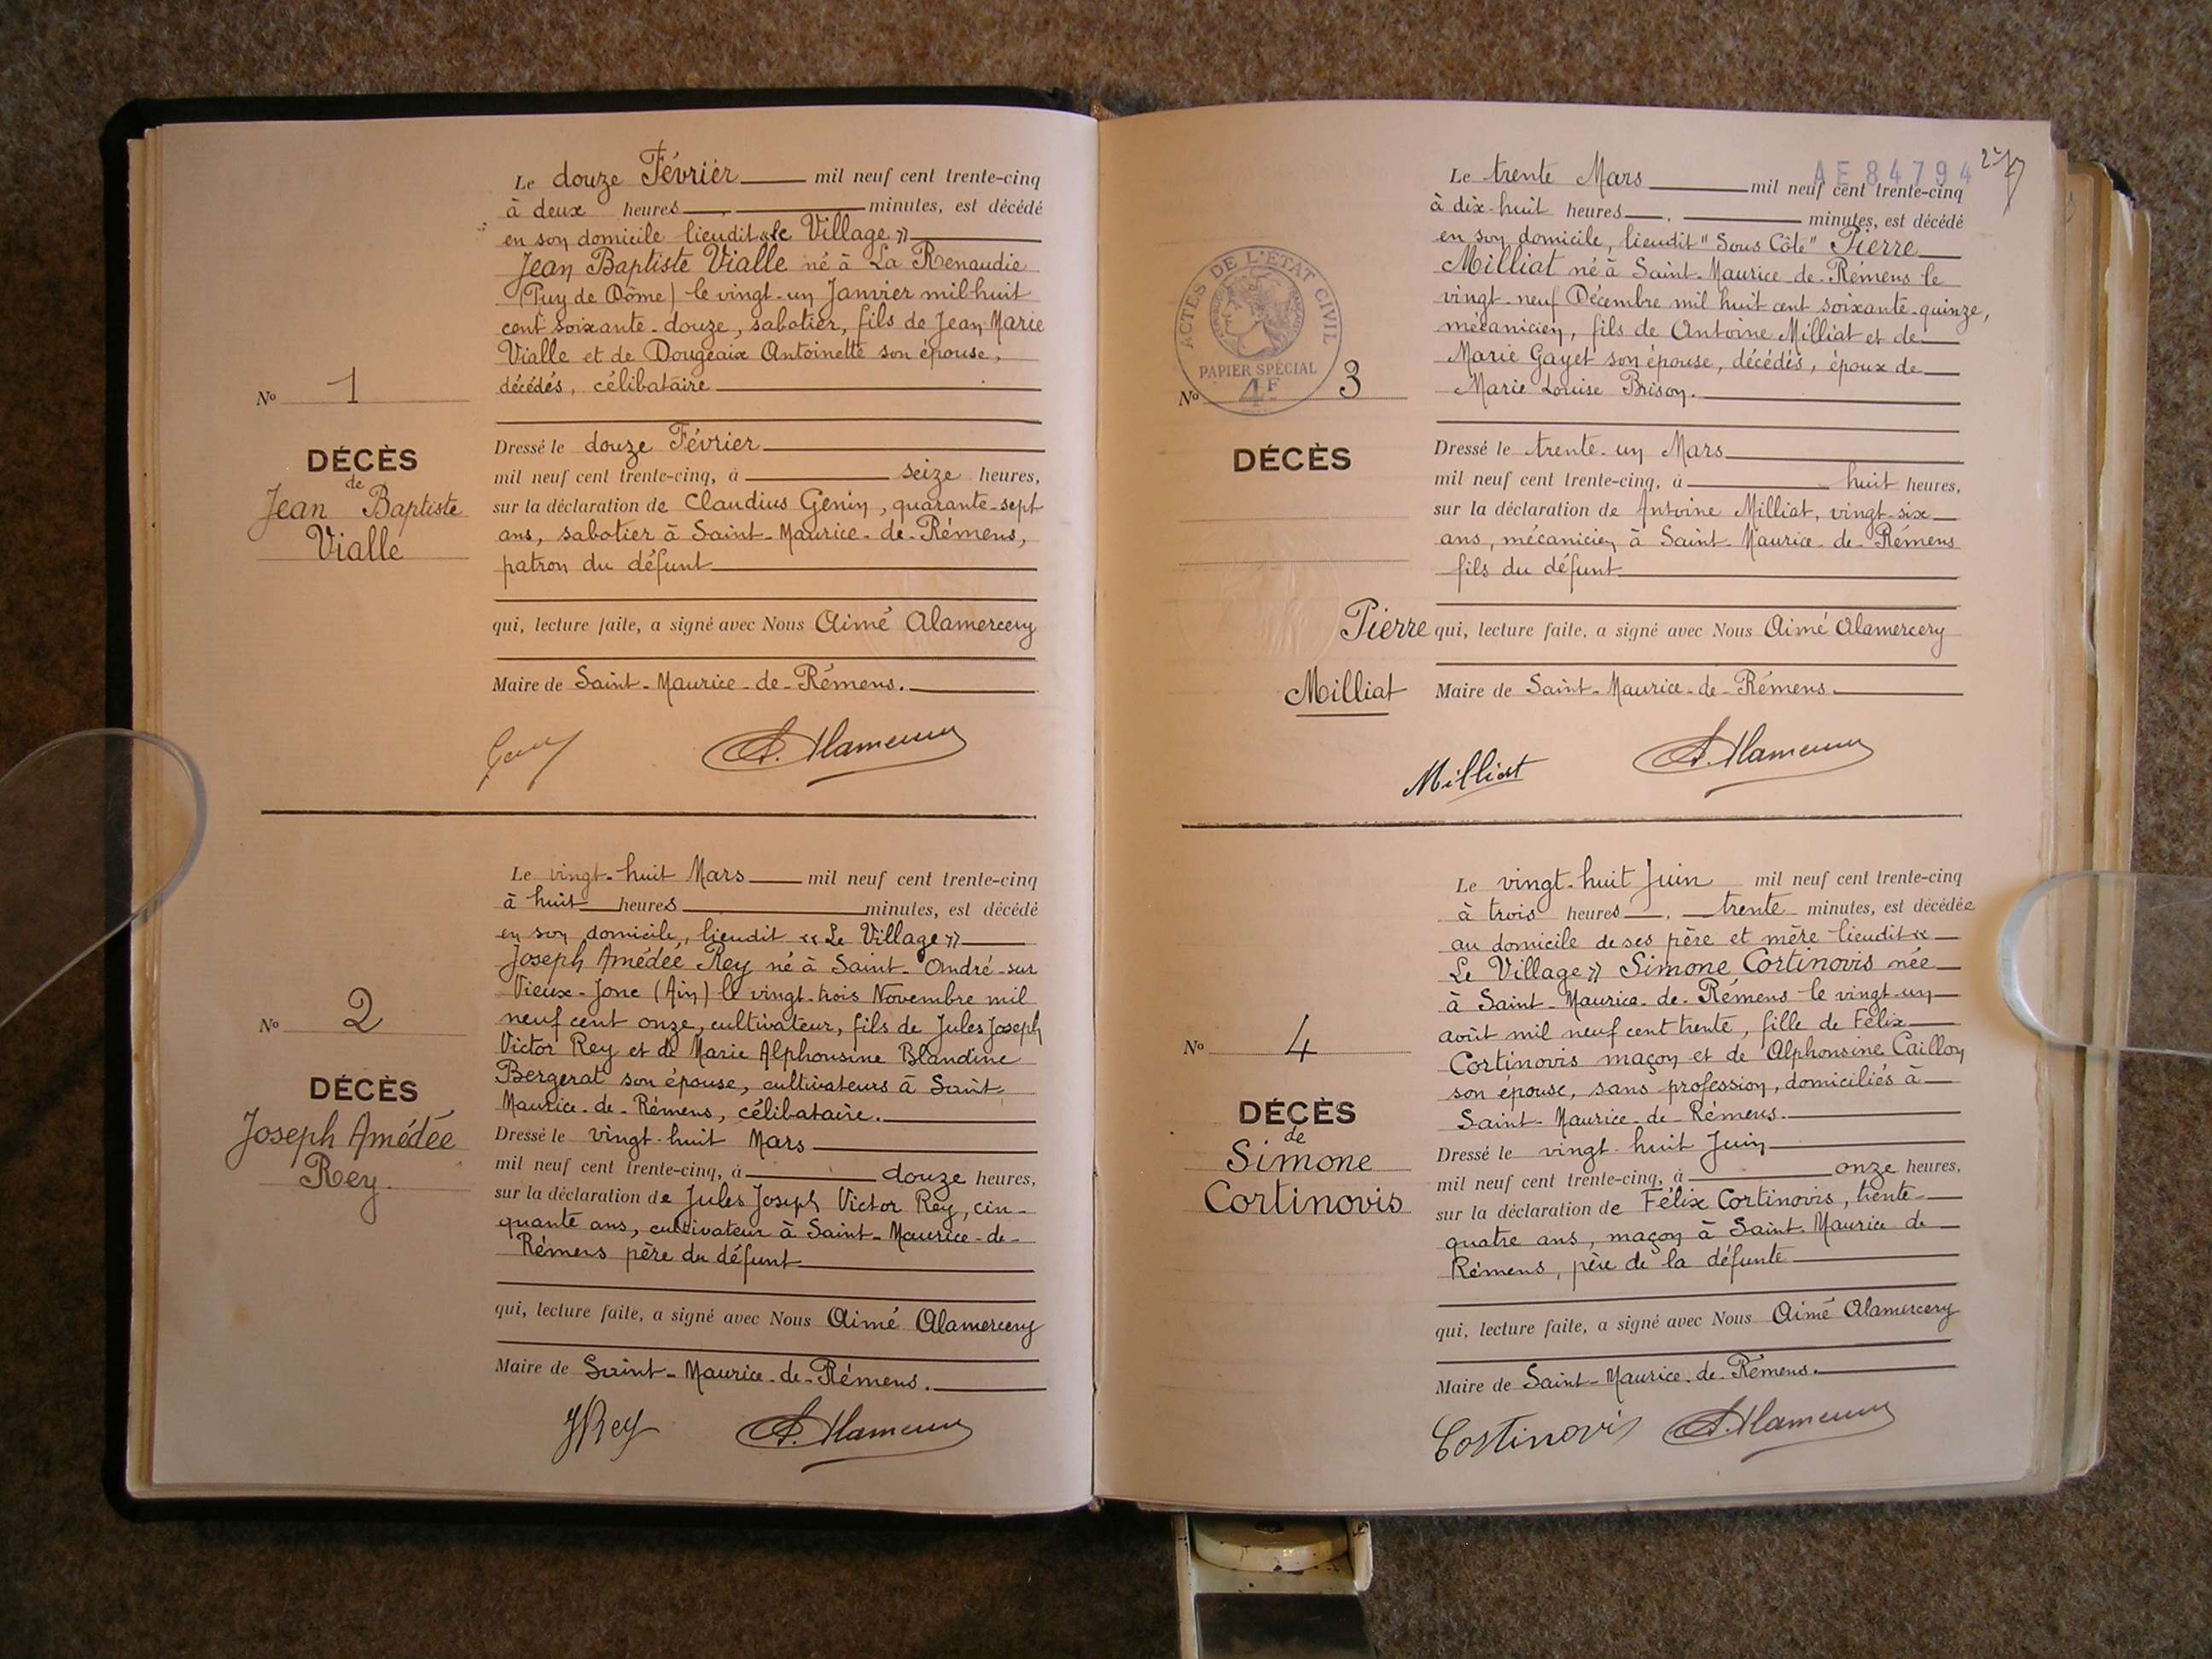 Le douze Février mil neuf cent trente-cinq
à deux heures minutes, est décédé
en son domicile lieudit «Le Village»
Jean Baptiste Vialle né à La Renaudie
(Puy de Dôme) le vingt-un Janvier mil huit
cent soixante-douze, sabotier, fils de Jean Marie
Vialle et de Dougeaix Antoinette son épouse,
décédés, célibataire
No 1
DÉCÈS
de
Jean Baptiste
Vialle
Dressé le douze Février
mil neuf cent trente-cinq, à seize heures,
sur la déclaration de Claudius Genin, quarante-sept
ans, sabotier à Saint-Maurice-de-Rémens,
patron du défunt
qui, lecture faite, a signé avec Nous Aimé Alamercery
Maire de Saint-Maurice-de-Rémens.
A. Alamercery
Le vingt-huit Mars mil neuf cent trente-cinq
à huit heures minutes, est décédé
en son domicile, lieudit «Le Village»
Joseph Amédée Rey né à Saint-André-sur
Vieux-Jonc (Ain) le vingt-trois Novembre mil
neuf cent onze, cultivateur, fils de Jules Joseph
Victor Rey et de Marie Alphonsine Blandine
Bergerat son épouse, cultivateurs à Saint-
Maurice-de-Rémens, célibataire.
No 2
DÉCÈS
Joseph Amédée
Rey.
Dressé le vingt-huit Mars
mil neuf cent trente-cinq, à douze heures,
sur la déclaration de Jules Joseph Victor Rey, cin-
quante ans, cultivateur à Saint-Maurice-de-
Rémens père du défunt
qui, lecture faite, a signé avec Nous Aimé Alamercery
Maire de Saint-Maurice-de-Rémens.
JRey A. Alamercery
AE84794
277
Le trente Mars mil neuf cent trente-cinq
à dix-huit heures minutes, est décédé
en son domicile, lieudit "Sous Côte" Pierre
Milliat né à Saint-Maurice-de-Rémens le
vingt-neuf Décembre mil huit cent soixante-quinze,
mécanicien, fils de Antoine Milliat et de
Marie Gayet son épouse, décédés, époux de
Marie Louise Brison.
ACTES DE L'ÉTAT CIVIL
PAPIER SPÉCIAL
4F
No 3
DÉCÈS
Pierre
Milliat
Dressé le trente-un Mars
mil neuf cent trente-cinq, à huit heures,
sur la déclaration de Antoine Milliat, vingt-six
ans, mécanicien à Saint-Maurice-de-Rémens
fils du défunt
qui, lecture faite, a signé avec Nous Aimé Alamercery
Maire de Saint-Maurice-de-Rémens.
Milliat A. Alamercery
Le vingt-huit Juin mil neuf cent trente-cinq
à trois heures trente minutes, est décédée
au domicile de ses père et mère lieudit «
Le Village» Simone Cortinovis née
à Saint-Maurice-de-Rémens le vingt-un
août mil neuf cent trente, fille de Félix
Cortinovis maçon et de Alphonsine Caillon
son épouse, sans profession, domiciliés à
Saint-Maurice-de-Rémens.
No 4
DÉCÈS
de
Simone
Cortinovis
Dressé le vingt-huit Juin
mil neuf cent trente-cinq, à onze heures,
sur la déclaration de Félix Cortinovis, trente-
quatre ans, maçon à Saint-Maurice de
Rémens, père de la défunte
qui, lecture faite, a signé avec Nous Aimé Alamercery
Maire de Saint-Maurice-de-Rémens.
Cortinovis A. Alamercery